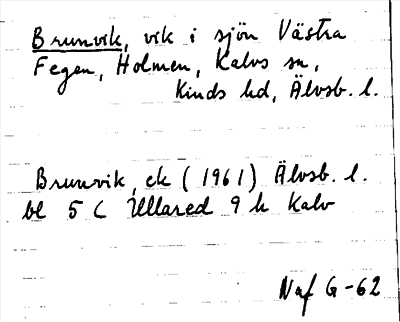 Brunvik, vik i sjön Västra
Fegen, Holmen, Kalvs sn,
Kinds hd, Älvsb. l.
Brunvik, ek (1961) Älvsb. l.
bl 5 C Ullared 9 h Kalv
Naf G-62